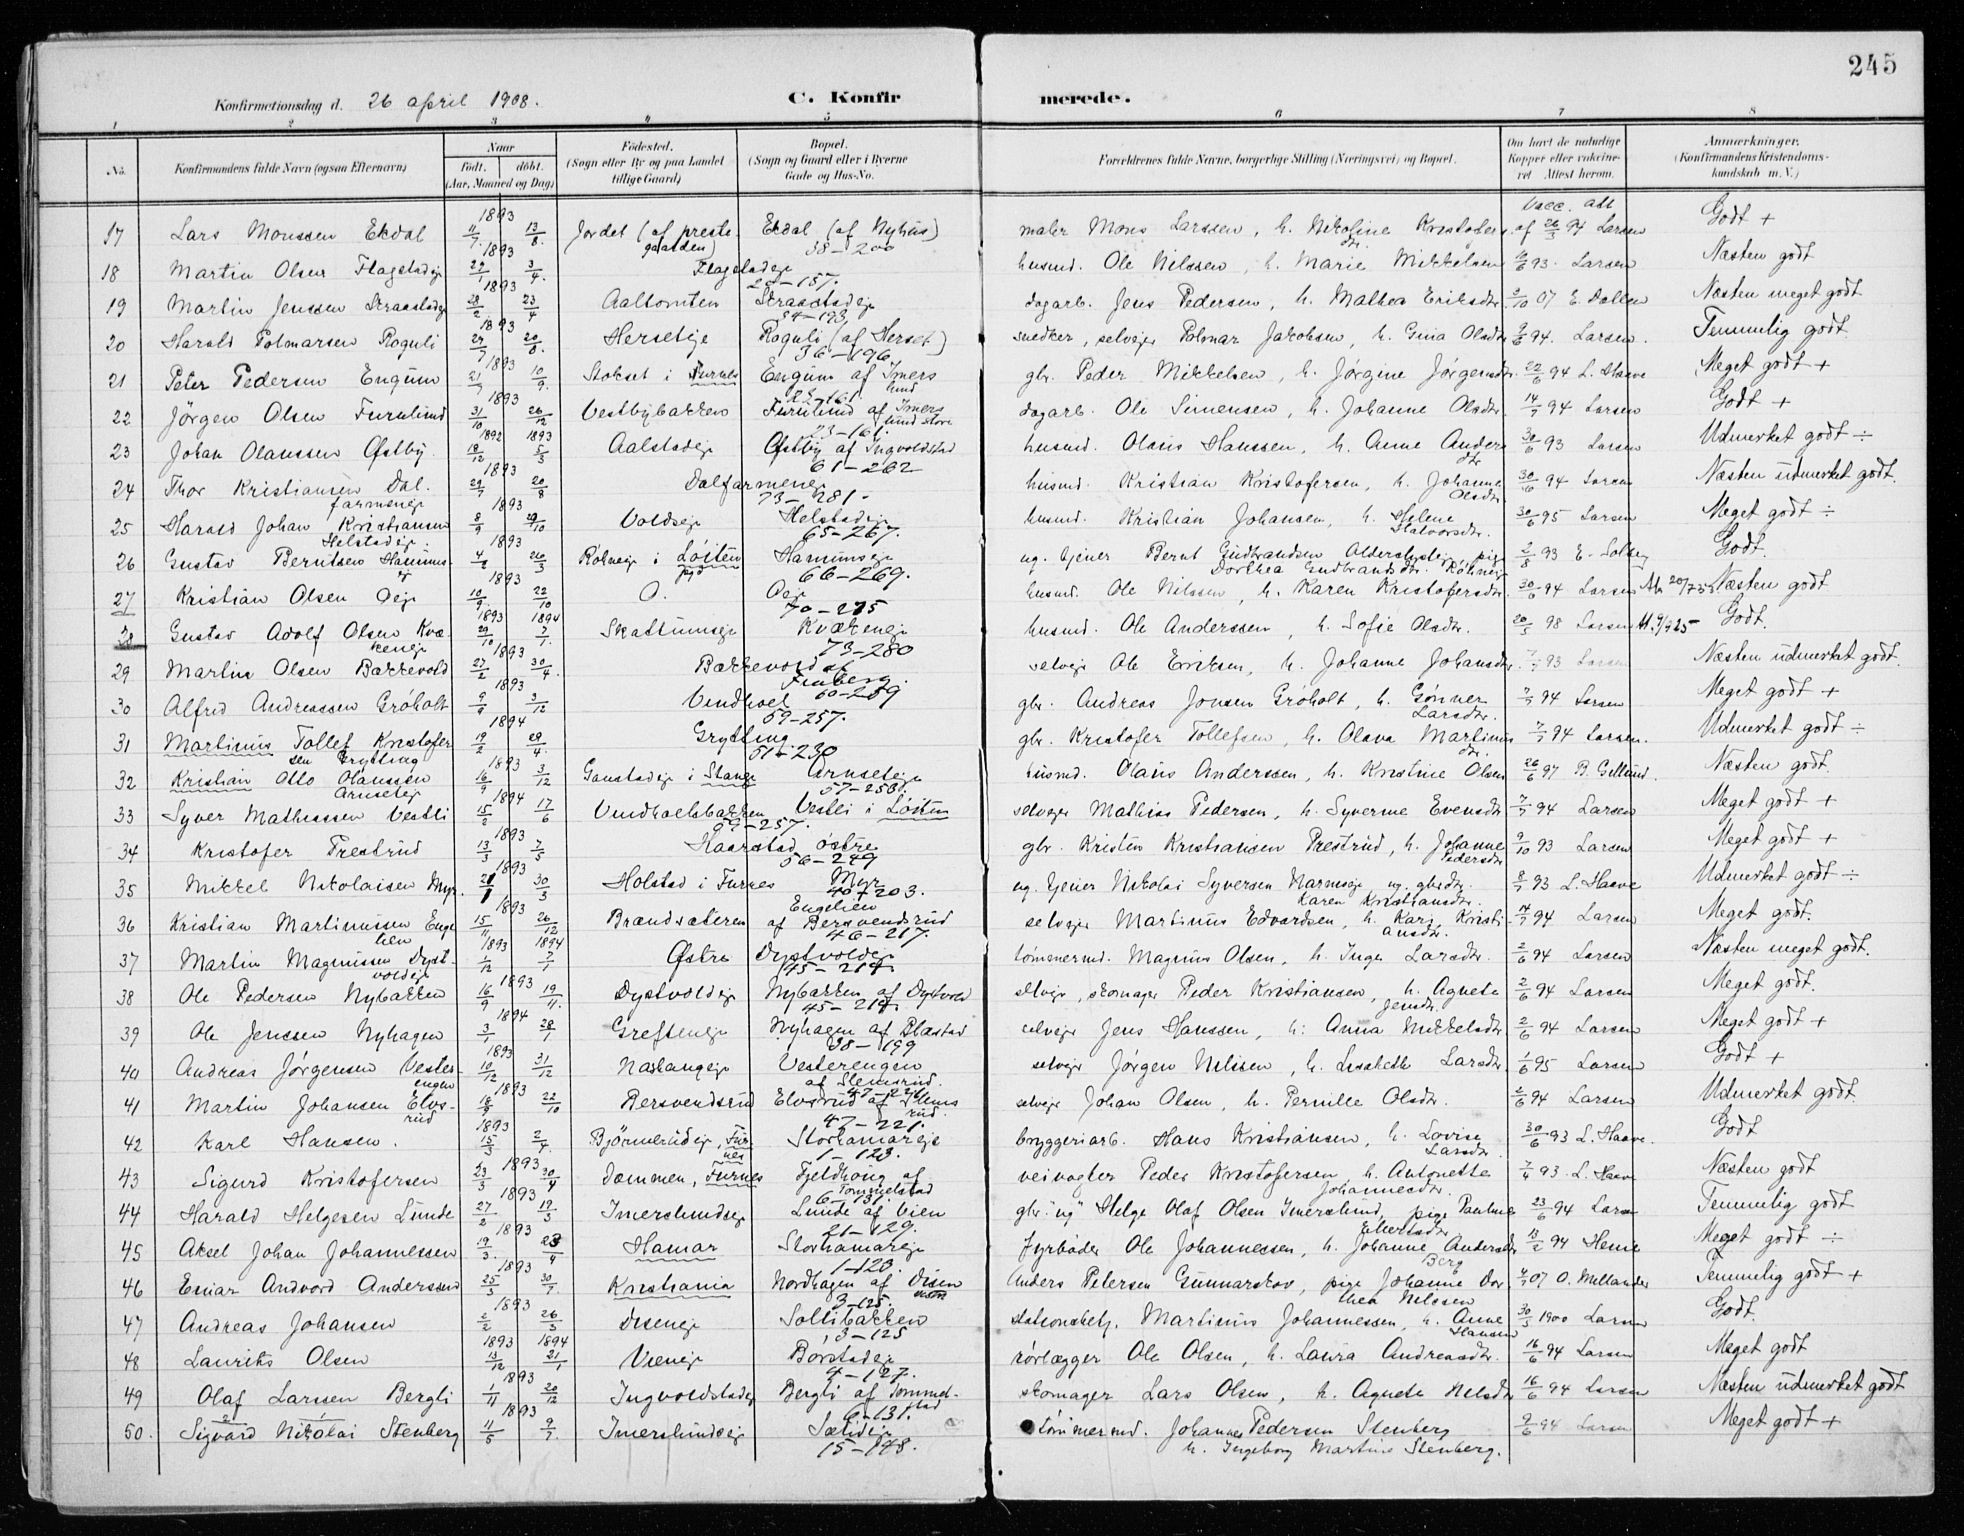 245
Konfirmationsdag d. 26 april 1908. C. Konfirmerede.
1 2 3 4 5 6 7 8
No. Konfirmandens fulde Navn (ogsaa Efternavn) Naar født. døbt. (Aar, Maaned og Dag) Fødested. (Sogn eller By og paa Landet tillige Gaard) Bopæl. (Sogn og Gaard eller i Byerne Gade og Hus-No. Forældrenes fulde Navne, borgerlige Stilling (Næringsvei) og Bopæl. Om havt de naturlige Kopper eller vaccineret. Attest herom. Anmærkninger. (Konfirmandens Kristendomskundskab m. V.)
17 Lars Monssen Ekdal 1893 11/7 13/8 Jordet (af prestegaarden) Ekdal (af Nyhus) 38-200 maler Mons Larssen, h. Nikoline Kristofersdtr. Vacc. att. af 26/3 94 Larsen Godt +
18 Martin Olsen Flagstadeje 1893 3/4 Flagstadeje husmd. Ole Nilssen, h. Marie Mikkelsen 93. Larsen Næsten godt
19 Martin Jenssen Straastadeje 1893 28/2 23/4 Aaltomten Straastadeje 54-193 dagarb. Jens Pedersen, h. Mathea Eriksdtr 3/10 07 E. Dallen Næsten meget godt
20 Harald Polmarsen Roguli 1893 29/7 20/8 Herseteje Roguli (af Herset) 36-196 snedker, selvejer Polmar Jakobsen, h. Gina Olsdtr 94. Larsen. Temmelig godt.
21 Peter Pedersen Engum 1893 21/7 10/9 Stokset i Furnes Engum af Imerslund 23-161 gbr. Peder Mikkelsen, h. Jørgine Jørgensdtr. 22/6 94 L. Haave Meget godt +
22 Jörgen Olsen Furulund 1893 31/10 26/12 Vestbybakken Furulund af Imerslund store 23-161. dagarb. Ole Simensen, h. Johanne Olsdtr 14/7 94 Larsen Godt +
23 Johan Olaussen Østby. 1892 18/12 1893 5/3 Aalstadeje Østby af Ingvoldstad 61-262 husmd. Olaus Hanssen, h. Anne Andersdtr 30/6 93 Larsen Udmerket godt ÷
24 Thor Kristiansen Dalfarmeneje 1893 29/7 20/8 Dalfarmeneje 73-281. husmd. Kristian Kristofersen, h. Johanne Olsdtr 30/6 94 Larsen Næsten udmerket godt.
25 Harald Johan Kristiansen Helstadeje. 1893 8/9 29/10 Voldseje Helstadeje 65-267. husmd. Kristian Johansen, h. Helene Halvorsdtr. 30/6 95 Larsen Meget godt ÷
26 Gustav Berntsen Hamumseje 1893 26/3 Rökneje i Löiten pgd Hamumseje 66-269. ug. tjener Bernt Gudbrandsen, pige Dorthea Gudbrandsdtr. Rökneje 2/8 93 E. Solberg Godt.
27 Kristian Olsen Oeje 1893 10/9 22/10 O. Oeje 70-275 husmd. Ole Nilssen, h. Karen Kristofersdtr 30/6 94 Larsen Næsten godt
28 Gustav Adolf Olsen Kvækeneje 1893 29/10 1894 7/1 Skattumseje Kvækeneje 73-280 husmd. Ole Anderssen, h. Sofie Olsdtr. 20/5 98 Larsen Godt.
29 Martin Olsen Bakkevold 1893 27/2 30/4 Bakkevold af Finberg. 60-259 selvejer Ole Eriksen, h. Johanne Johansdtr. 7/7 93 Larsen Næsten udmerket godt.
30 Alfred Andreassen Gröholt 1893 9/9 3/12 Vindhoel 59-257. gbr. Andreas Jonsen Gröholt, h. Gönner Larsdtr. 7/7 94 Larsen Meget godt +
31 Martinus Tollef Kristofersen Grytting 1894 19/2 29/4. Grytting. 51-230 gbr. Kristofer Tollefsen, h. Olava Martinusdtr. 7/7 94 Larsen. Udmerket godt ÷
32 Kristian Otto Olaussen Arnseteje 1893 16/9 3/12 Gaustadeje i Stange Arnseteje 57-250. husmd. Olaus Anderssen, h. Kristine Olsen 26/6 97 B. Gillund. Næsten godt.
33 Syver Mathessen Vestli 1894 15/2 17/6 Vindhoelsbakken Vestli i Löiten 59-257. selvejer Mathias Pedersen, h. Syverine Evensdtr 7/7 94 Larsen Meget godt +
34 Kristofer Prestrud 1893 13/3 7/5 Kaarstad østre 56-249 gbr. Kristen Kristiansen Prestrud, h. Johanne Pedersdtr 9/10 93 Larsen Meget godt +
35 Mikkel Nikolaisen Myr. 1893 30/3 Holstad i Furnes Myr 40-203. ug. tjener Nikolai Syversen, ug. gbrdtr. Karen Kristiansdtr. 8/7 93 L. Haave Udmerket godt ÷
36 Kristian Martinussen Engelien 1893 15/11 26/12 Brandsæteren Engelien af Bersvendsrud 46-217. selvejer Martinus Edvardsen, h. Kari Kristiansdtr. 14/7 94 Larsen Meget godt.
37 Martin Magnussen Dystvoldeje 1893 1/12 1894 7/1 Østre Dystvoldeje 45-214 tömmermd. Magnus Olsen, h. Inger Larsdtr. 2/6 94 Larsen Næsten meget godt.
38 Ole Pedersen Nybakken 1893 16/9 19/11. Dystvoldeje Nybakken af Dystvold 45-214. selvejer, skomager Peder Kristiansen, h. Agnete Jensdtr. 2/6 94 Larsen Meget godt.
39 Ole Jenssen Nyhagen 1894 3/1 28/1 Grefteneje Nyhagen af Blæstad 38-199 selvejer Jens Hanssen, h. Anna Mikkelsdtr. 2/6 94 Larsen Meget godt +
40 Andreas Jörgensen Vesterengen 1893 10/12 31/12 Naslangeje Vesterengen af Slemsrud. selvejer Jörgen Nilssen, h. Lisabeth Larsdtr 1/6 95 Larsen Godt +
41 Martin Johansen Elvsrud 1893 16/9 22/10 Bersvendsrud Elvsrud af Slemsrud. 47-221. selvejer Johan Olsen, h. Pernille Olsdtr. 2/6 94 Larsen Udmerket godt.
42 Karl Hansen. 1893 15/3 2/4. Bjørnerudeje, Furnes Storhamareje 1-123. bryggeriarb. Hans Kristiansen, h. Lovise Larsdtr 30/6 93 L. Haave. Godt
43 Sigurd Kristofersen 1893 23/3 30/4 Dommen, Furnes Fjeldhöug af Tommelstad 6-131. veivogter Peder Kristofersen h. Antonette Johannesdtr. 7/4 93. L. Haave Næsten godt
44 Harald Helgesen Lunde 1893 27/2 19/3 Imerslundseje Lunde af Vien 21-129. gbr. "ug" Helge Olaf Olsen Imerslund, pige Pauline 23/6 94 Larsen Temmelig godt
45 Aksel Johan Johannessen 1893 19/3. 23/4 Hamar Storhamareje 1-123. Fyrböder Ole Johannessen, h. Johanne Andersdtr 13/2 94 Heme Meget godt ÷
46 Einar Andvord Anderssen 1893 25/5 30/7. Kristiania Nordhagen af Disen 3-125. Anders Petersen Gunnarskov, pige Johanne Dorthea Nilssen Berg 4/7 07 O. Mellander Temmelig godt +
47 Andreas Johansen 1893 2/2 26/3 Diseneje Sollibakken 3-125 stationsbetj. Martinus Johannessen, h. Anne Hansen 30/5 1900 Larsen Godt.
48 Laurits Olsen 1893 13/12 1894 21/1 Vieneje Borstadeje 4-127. rørlægger Ole Olsen, h. Laura Andreasdtr. 16/6 94 Larsen Meget godt
49 Olaf Larsen Bergli 1893 1/11 20/12 Ingvoldstadeje Bergli af Tommelstad 6-131. skomager Lars Olsen, h. Agnete Nilsdtr 16/6 94 Larsen Næsten udmerket godt
50. Sigvard Nikolai Stenberg 1893 11/5 9/7. Imerslundseje Sælideje 15-148. tömmermd. Johannes Pedersen Stenberg h. Ingeborg Martine Stenberg. 9/6 94 Larsen Meget godt +